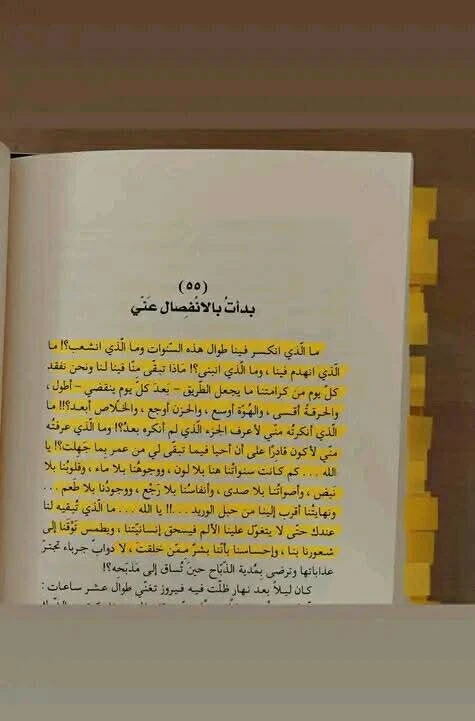 (٥٥)
بدأتُ بالانْفِصال عنّي
ما الّذي انكسر فينا طوال هذه السّنوات وما الّذي انشعب؟! ما
الّذي انهدم فينا ، وما الّذي انبنى؟! ماذا تبقّى منّا فينا لنا ونحن نفقد
كلّ يوم من كرامتنا ما يجعل الطّريق – بَعدَ كلّ يوم ينقضي – أطول ،
والحرقةُ أقسى ، والهُوّة أوسع ، والحزن أوجع ، والخلاص أبعد؟!! ما
الّذي أنكرتُه منّي لأعرف الجزء الّذي لم أنكره بعدُ؟! وما الّذي عرفتُه
منّي لأكون قادرًا على أن أحيا فيما تبقّى لي من عمرٍ بما جَهلت؟! يا
الله .... كم كانت سنواتُنا هنا بلا لون ، ووجوهُنا بلا ماء ، وقلوبُنا بلا
نبَض ، وأصواتُنا بلا صدى ، وأنفاسُنا بلا رَجْع ، ووجودُنا بلا طعم . .
ونهايتُنا أقرب إلينا من حبل الوريد ...!! يا الله ... ما الّذي تُبقيه لنا
عندك حتّى لا يتغوّل علينا الألم فيسحق إنسانيّتنا ، ويطمس تَوْقنا إلى
شعورنا بنا ، وإحساسنا بأنّنا بشرٌ ممّن خلقتَ ، لا دوابّ جرباء تجترّ
عذاباتها وترضى بمُدية الذّبّاح حينَ تُساق إلى مَذبَحه؟!
كان ليلاً بعد نهار ظلّت فيه فيروز تغنّي طوال عشر ساعات :